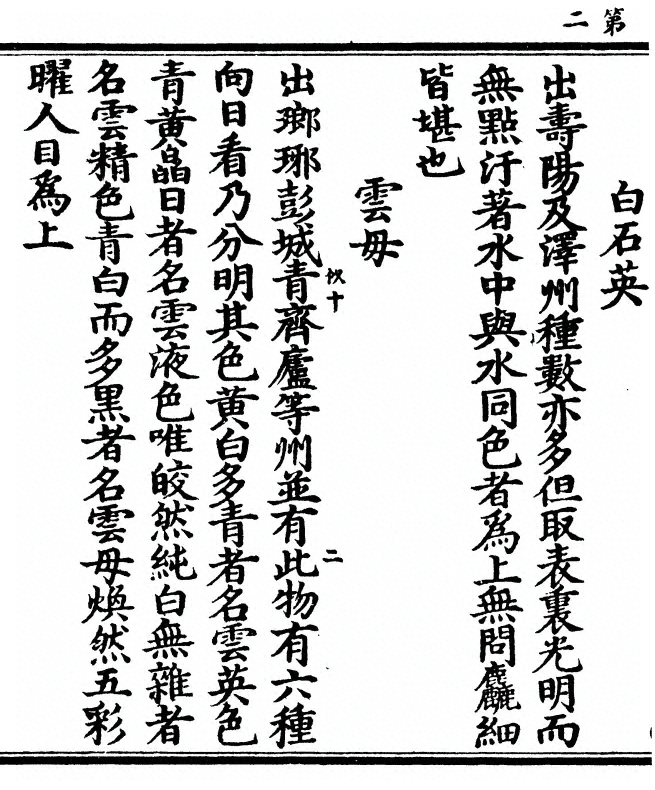 第二
白石英
出壽陽及澤州種數亦多但取表裏光明而
無點汙著水中與水同色者爲上無問麤細
皆堪也
雲母
出瑯琊彭城青齊廬等州並有此物有六種
十
二
向日看乃分明其色黃白多青者名雲英色
青黃晶日者名雲液色唯皎然純白無雜者
名雲精色青白而多黑者名雲母煥然五彩
曜人目爲上